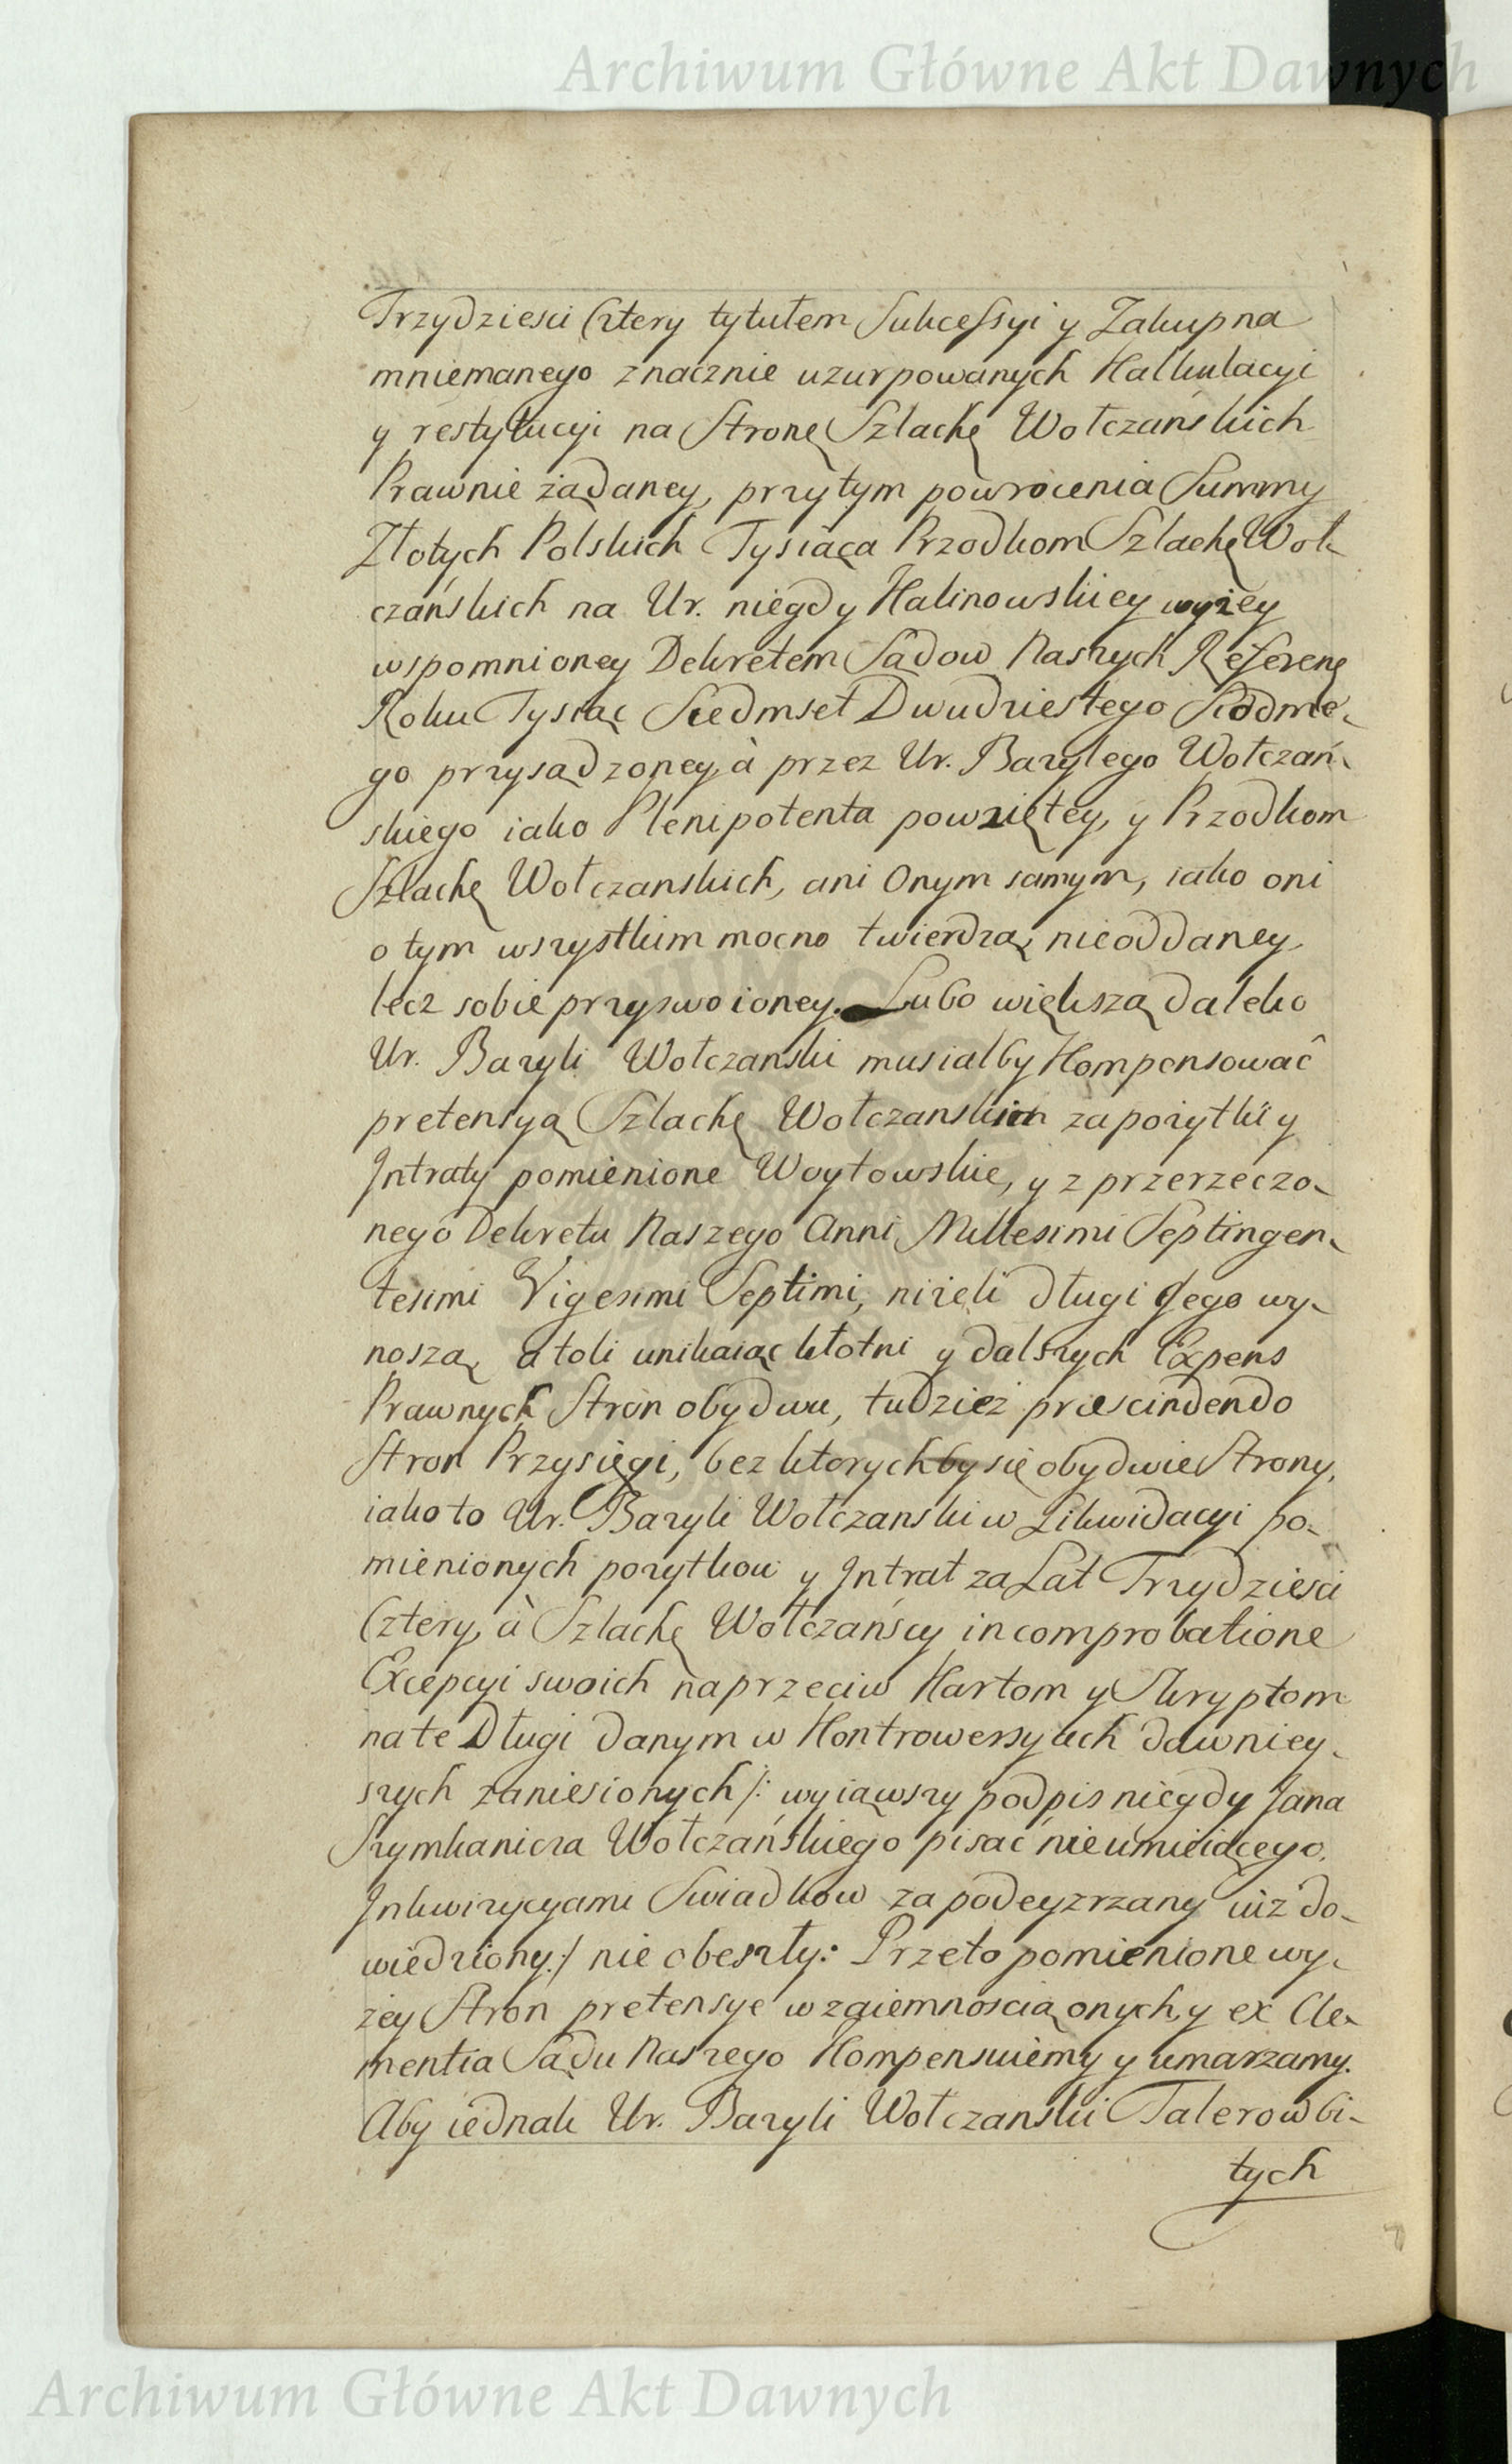 Archiwum Główne Akt Dawnych
Trzydziesci Cztery tytułem Sukcessyi y Zakupna
mniemanego znacznie uzurpowanych Kalkulacyi
y restytucyi na Stronę Szlachę Wołczańskich
Prawnie żądaney, przytym powrocenia Summy
Złotych Polskich Tysiąca Przodkom Szlachę Woł-
czańskich na Ur. niegdy Kalinowskiey wyżey
wspomnioney Dekretem Sądow Naszych Referenę
Roku Tysiąc Siedmset Dwudziestego Siodme-
go przysądzoney, à przez Ur. Bazylego Wołczań-
skiego iako Plenipotenta powziętey, y Przodkom
Szlachę Wołczanskich, ani Onym samym, iako oni
o tym wszystkim mocno twierdzą, nieoddaney,
lecz sobie przyswoioney. Lubo większą daleko
Ur. Bazyli Wołczanski musiałby Kompensować
pretensyą Szlachę Wołczanskim za pożytki y
Intraty pomienione Woytowskie, y z przerzeczo-
nego Dekretu Naszego Anni Millesimi Septingen-
tesimi Vigesimi Septimi, niżeli długi Jego wy-
noszą, atoli unikaiąc kłotni y dalszych Expens
Prawnych Stron obydwu, tudzież præscindendo
Stron Przysięgi, bez ktorychby się obydwie Strony,
iako to Ur. Bazyli Wołczanski w Likwidacyi po-
mienionych pożytkow y Intrat za Lat Trzydziesci
Cztery, à Szlachę Wołczańscy in comprobatione
Excepcyi swoich naprzeciw Kartom y Skryptom
na te Długi danym w Kontrowersyach dawniey-
szych zaniesionych /: wyiąwszy podpis niegdy Jana
Szymkanicza Wołczańskiego pisać nieumieiącego,
Inkwizycyami Swiadkow za podeyzrzany iuż do-
wiedziony :/ nie obeszły: Przeto pomienione wy-
żey Stron pretensye wzaiemnoscią onych, y ex Cle-
mentia Sądu Naszego Kompensuiemy y umarzamy.
Aby iednak Ur. Bazyli Wołczanski Talerow bi-
tych
Archiwum Główne Akt Dawnych